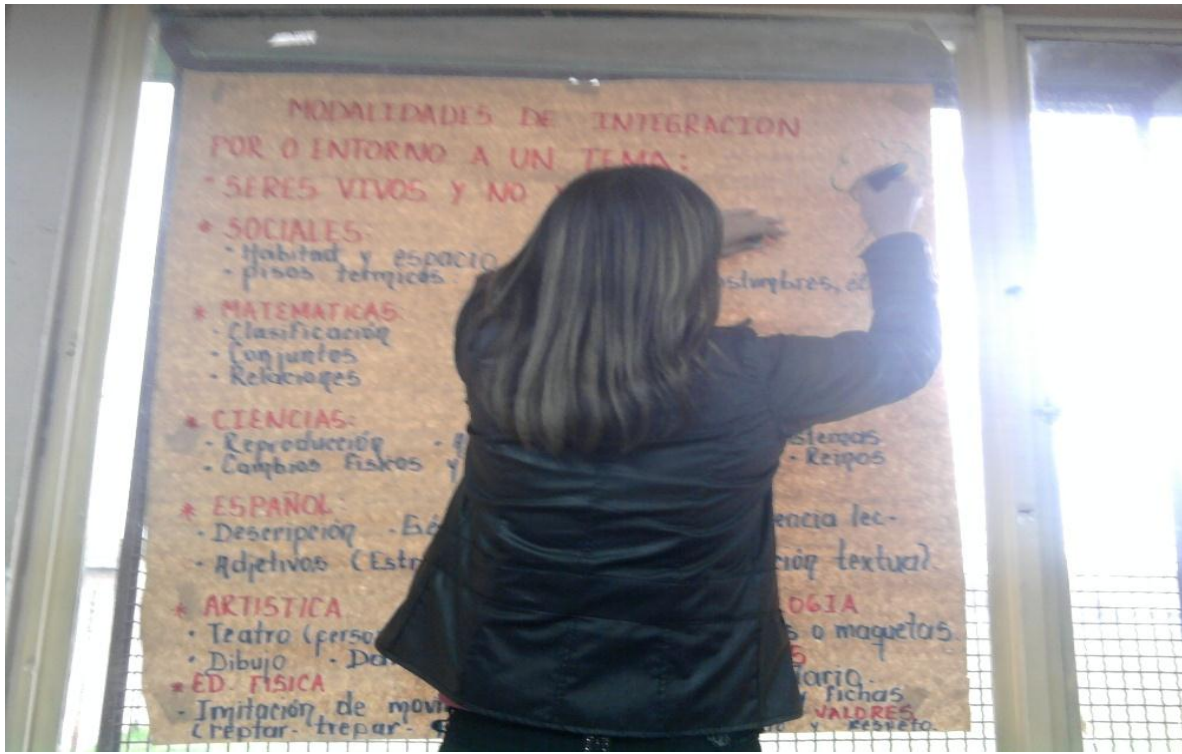 MODALIDADES DE INTEGRACION
POR O ENTORNO A UN TEMA:
- SERES VIVOS Y NO
* SOCIALES:
- Habitad y espacio
- pisos termicos ostumbres,
* MATEMATICAS
- Clasificación
- Conjuntos
- Relaciones
* CIENCIAS:
- Reproducción - stemas
- Cambios Fisicos y - Reinos
* ESPAÑOL:
- Descripción - encia lec-
- Adjetivos (Estr ción textual).
* ARTISTICA LOGIA
- Teatro (perso s o maquetas.
- Dibujo - Da S
* ED. FISICA iario.
- Imitación de movi y fichas
VALORES
(reptar- trepar- y respeto.